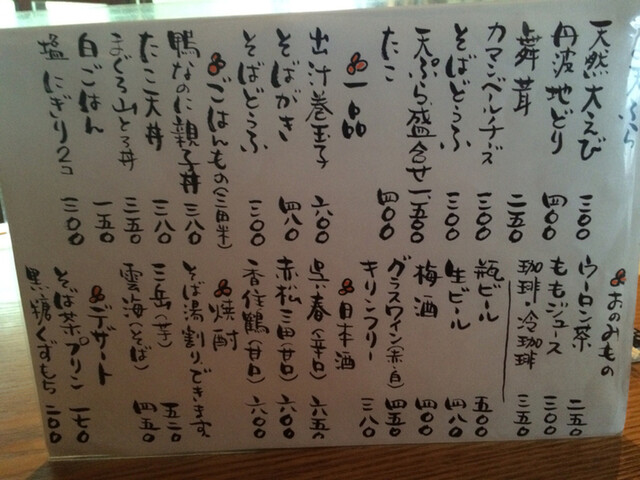 天ぷら
天然大えび 三〇〇
丹波地どり 四〇〇
舞茸 二五〇
カマンベールチーズ 三〇〇
そばどうふ 三〇〇
天ぷら盛合せ 一、五〇〇
たこ 四〇〇
一品
出汁巻玉子 六〇〇
そばがき 四八〇
そばどうふ 三〇〇
ごはんもの(三田米)
鴨なのに親子丼 三八〇
たこ天丼 三八〇
まぐろ山とろ丼 三五〇
白ごはん 一五〇
塩にぎり2コ 三〇〇
おのみもの
ウーロン茶 二五〇
ももジュース 三〇〇
珈琲・冷珈琲 三五〇
瓶ビール 五〇〇
生ビール 四八〇
梅酒 四〇〇
グラスワイン(赤・白) 四五〇
キリンフリー 三八〇
日本酒
呉春(辛口) 六五〇
赤松三田(甘口) 六〇〇
香住鶴(甘口) 六〇〇
焼酎
そば湯割りできます
三岳(芋) 五二〇
雲海(そば) 四五〇
デザート
そば茶プリン 一七〇
黒糖くずもち 二〇〇